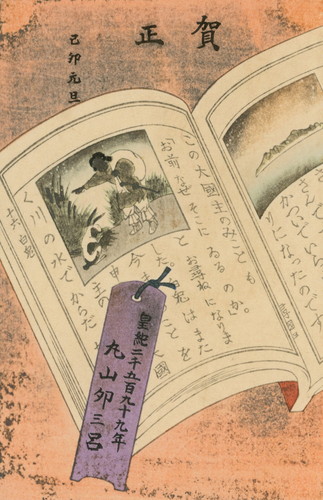 賀正
己卯元旦
さんで
かついてい
りになつたのです
この大國主のみことも
「お前なぜそこにゐるのか」
とお尋ねになりま
兎はまた
今ま
ことを
申
主の
く川の水でからだ
十六 白兎
皇紀二千五百九十九年
丸山卯三呂